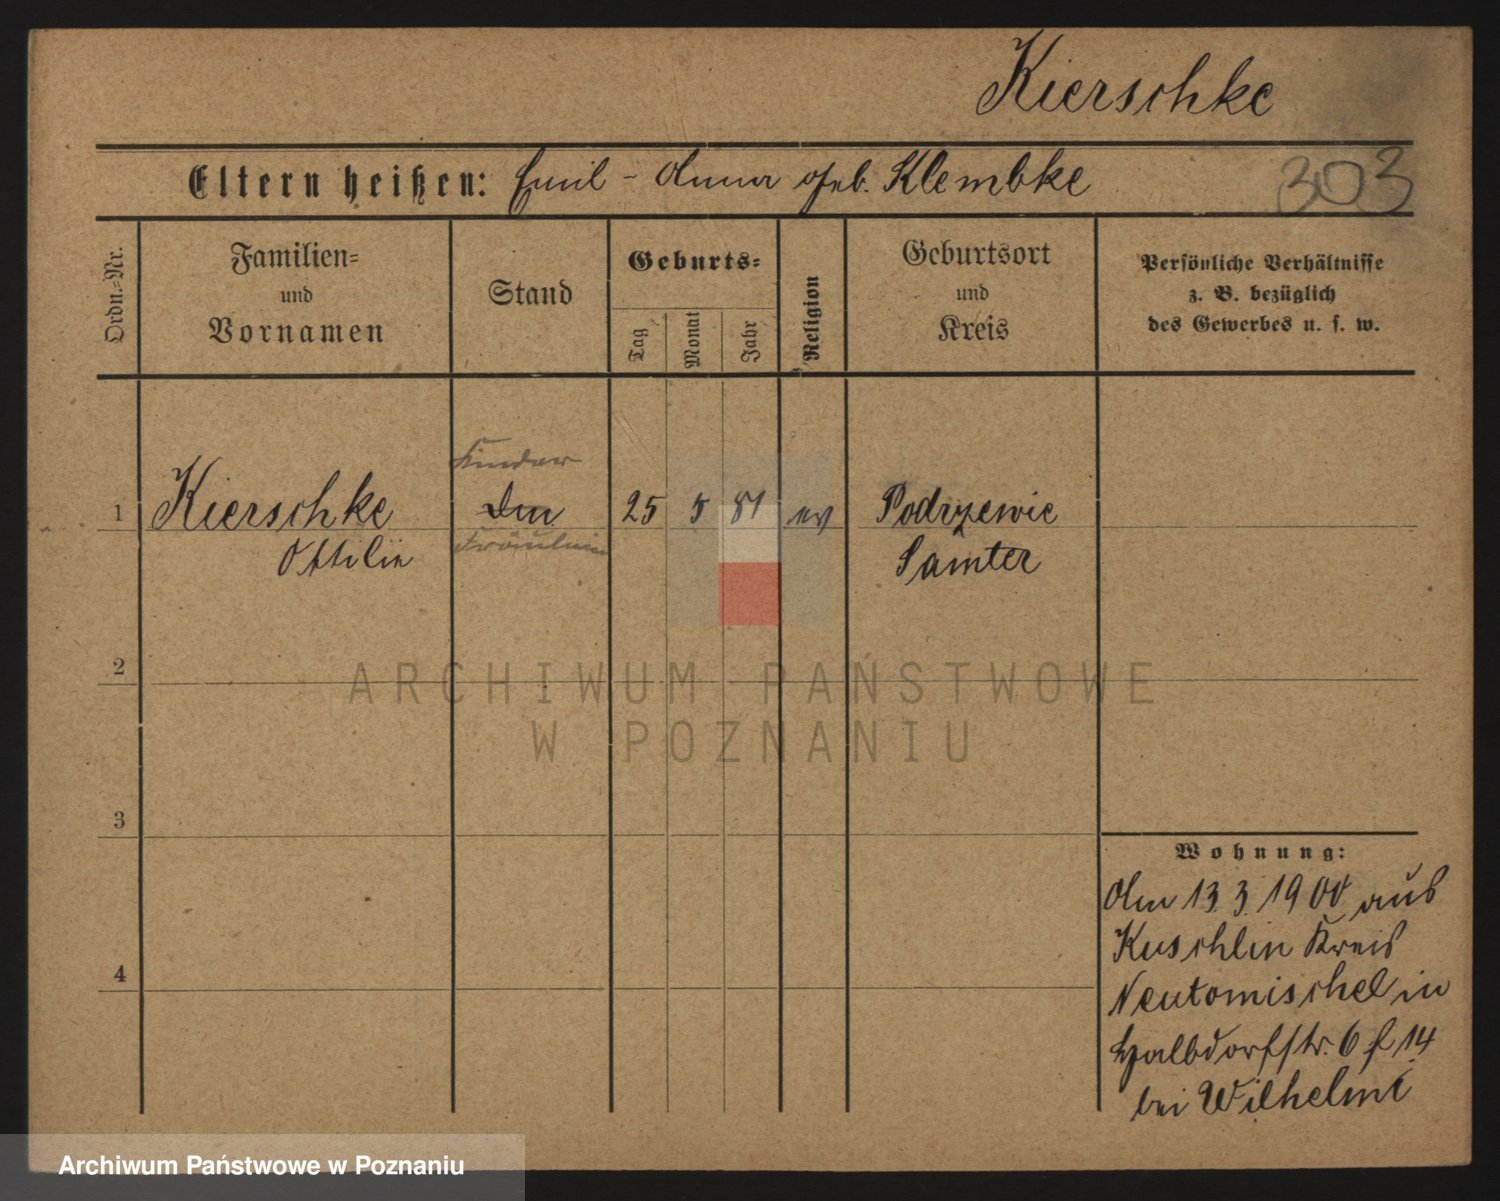 Kierschke
Eltern heißen: Emil - Anna geb. Klembke
303
Ordn.-Nr.
Familien-
und
Vornamen
Stand
Geburts-
Tag
Monat
Jahr
Religion
Geburtsort
und
Kreis
Persönliche Verhältnisse
z. B. bezüglich
des Gewerbes u. s. w.
Kinder
1 Kierschke 25 5 81 ev Podrzewie
Fräulein
Ottilie Samter
2
ARCHIWUM PAŃSTWOWE
W POZNANIU
3
Wohnung:
Am 13.3.1900 aus
Kuschlin Kreis
4
Neutomischel in
Halbdorfstr. 6 f 14
bei Wilhelmi
Archiwum Państwowe w Poznaniu